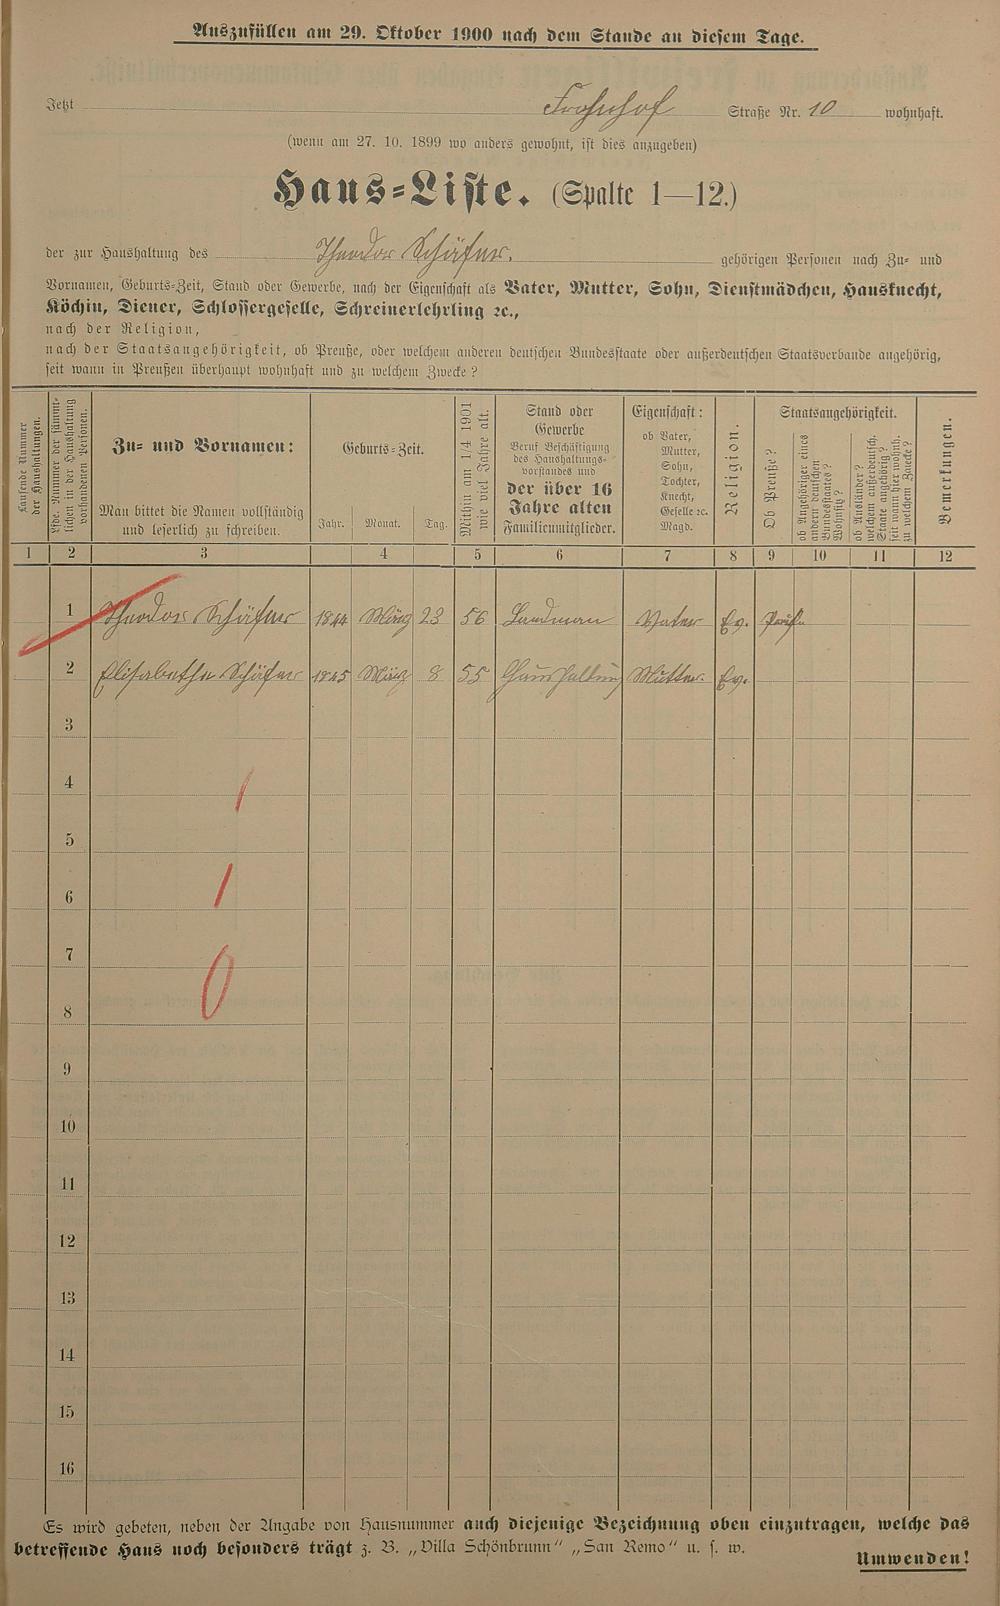 Auszufüllen am 29. Oktober 1900 nach dem Stande an diesem Tage.
Jetzt Frohnhof Straße Nr. 10 wohnhaft.
(wenn am 27. 10. 1899 wo anders gewohnt, ist dies anzugeben)
Haus-Liste. (Spalte 1—12.)
der zur Haushaltung des Theodor Schäfer. gehörigen Personen nach Zu- und
Vornamen, Geburts-Zeit, Stand oder Gewerbe, nach der Eigenschaft als Vater, Mutter, Sohn, Dienstmädchen, Hausknecht,
Köchin, Diener, Schlossergeselle, Schreinerlehrling ꝛc.,
nach der Religion,
nach der Staatsangehörigkeit, ob Preuße, oder welchem anderen deutschen Bundesstaate oder außerdeutschen Staatsverbande angehörig,
seit wann in Preußen überhaupt wohnhaft und zu welchem Zwecke?
Laufende Nummer
der Haushaltungen.
Lfde. Nummer der sämmt-
lichen in der Haushaltung
vorhandenen Personen.
Zu- und Vornamen:
Man bittet die Namen vollständig
und leserlich zu schreiben.
Geburts-Zeit.
Jahr. Monat. Tag.
Mithin am 1/4 1901
wie viel Jahre alt.
Stand oder
Gewerbe
Beruf Beschäftigung
des Haushaltungs-
vorstandes und
der über 16
Jahre alten
Familienmitglieder.
Eigenschaft:
ob Vater,
Mutter,
Sohn,
Tochter,
Knecht,
Geselle ꝛc.
Magd.
Religion.
Staatsangehörigkeit.
Ob Preuße?
ob Angehöriger eines
andern deutschen
Bundesstaates?
Wohnsitz?
ob Ausländer?
welchem außerdeutsch.
Staate angehörig?
seit wann hier wohnh.
zu welchem Zwecke?
Bemerkungen.
1 2 3 4 5 6 7 8 9 10 11 12
1 Theodor Schäfer 1844 März 23 56 Landman Vater Ev. Preuß.
2 Elisabethe Schäfer 1845 März 8 55 Haushaltung Mutter Ev.
3
4
5
6
7
8
9
10
11
12
13
14
15
16
1
1
0
Es wird gebeten, neben der Angabe von Hausnummer auch diejenige Bezeichnung oben einzutragen, welche das
betreffende Haus noch besonders trägt z. B. „Villa Schönbrunn“ „San Remo“ u. s. w.
Umwenden!